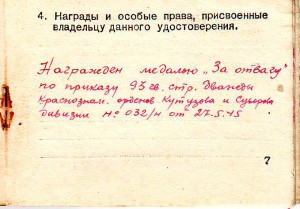 4. Награды и особые права, присвоенные
владельцу данного удостоверения.
Награжден медалью „За отвагу"
по приказу 93 гв. стр. Дважды
Краснознам. орденов Кутузова и Суворова
дивизии № 032/н от 27.5.45
7